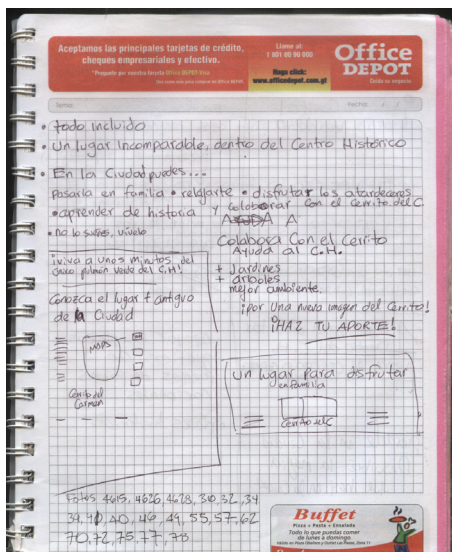 Aceptamos las principales tarjetas de crédito,
cheques empresariales y efectivo.
* Pregunte por nuestra tarjeta Office DEPOT Visa
Llame al:
1 801 00 90 800
Haga click:
www.officedepot.com.gt
Office
DEPOT
Cuida su negocio
Tema:
Fecha: / /
• todo incluido
• Un lugar Incomparable, dentro del Centro Histórico
• En la Ciudad puedes...
Pasarla en familia • relajarte • disfrutar los atardeceres
• aprender de historia y colaborar con el Cerrito del C.
• no lo sueñes, vívelo
A
¡viva a unos minutos del
único pulmón verde del C.H!
Conozca el lugar + antiguo
de la Ciudad
MAPS
Cerrito del
Carmen
Colabora Con el Cerrito
Ayuda al C.H.
+ Jardines
+ arboles
mejor ambiente,
¡por Una nueva imagen del Cerrito!
¡HAZ TU APORTE!
Un lugar para disfrutar
en familia
Cerrito del C
Fotos 4615, 4626, 4628, 30, 32, 34
39, 40, 46, 49, 55, 57, 62
70, 72, 75, 77, 78
Buffet
Pizza + Pasta + Ensalada
Todo lo que puedas comer
de lunes a domingo